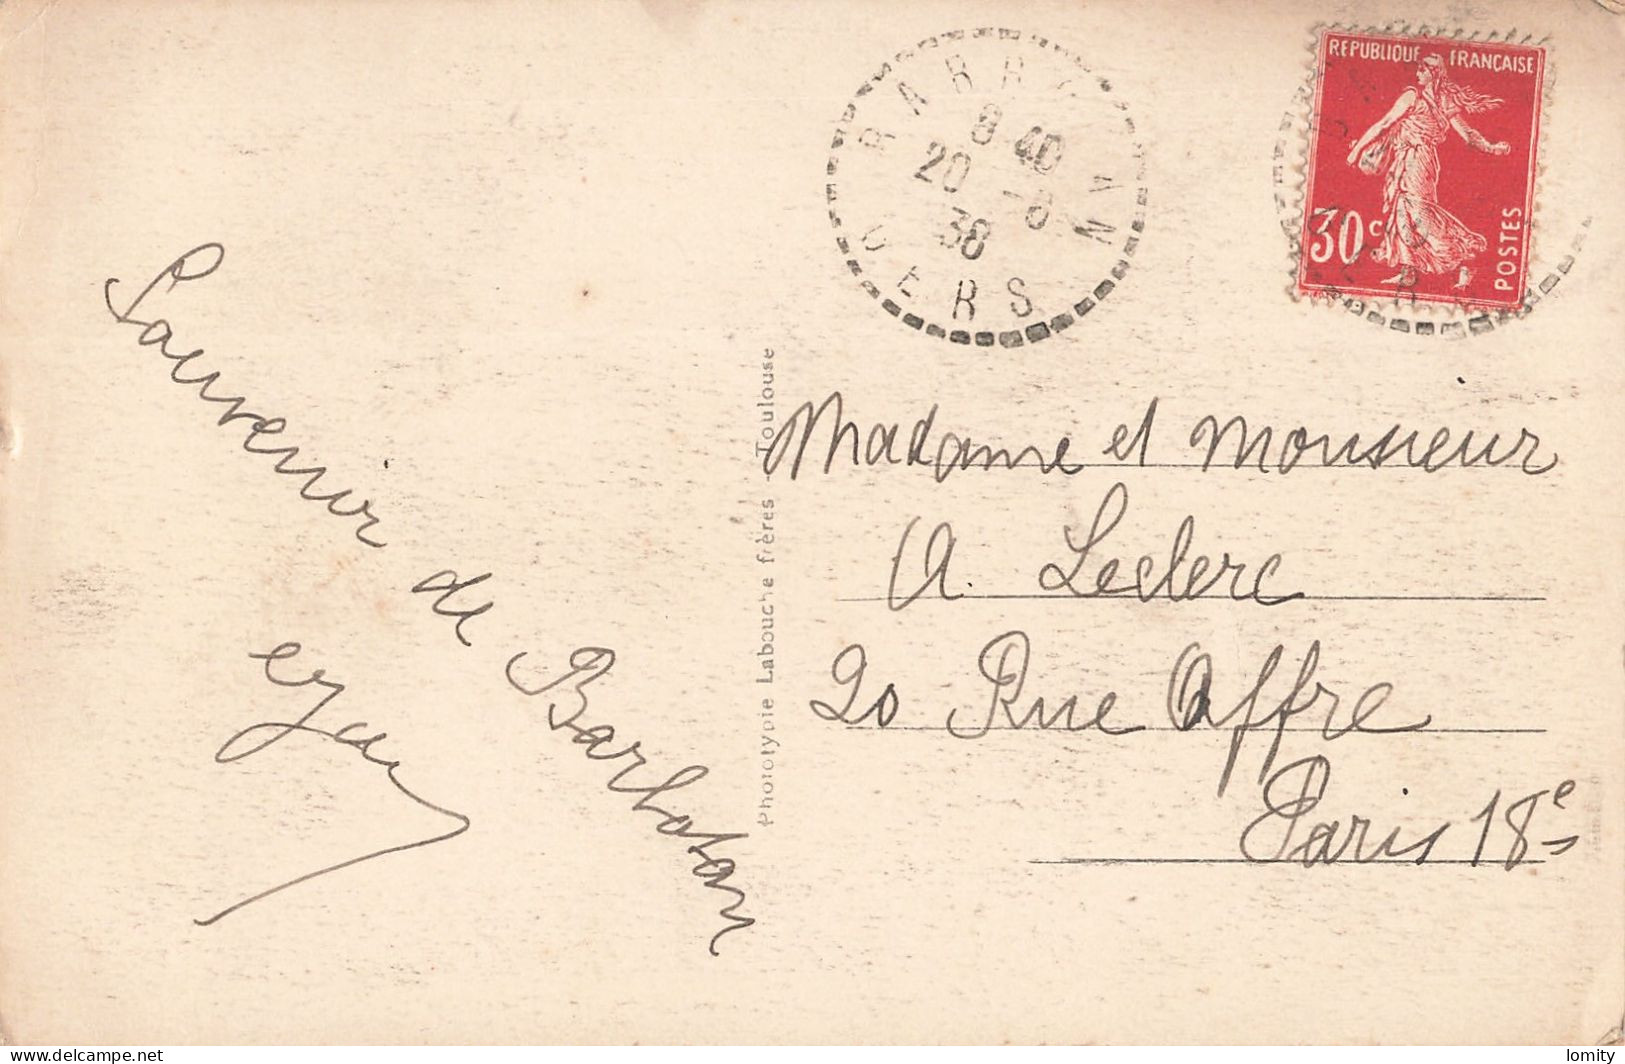 8 40
20 -8
38
GERS
REPUBLIQUE FRANÇAISE
30c
POSTES
Souvenir de Barbotan
Phototypie Labouche frères - Toulouse
Madame et Monsieur
A. Leclerc
20 Rue Affre
Paris 18e
delcampe.net
lomity